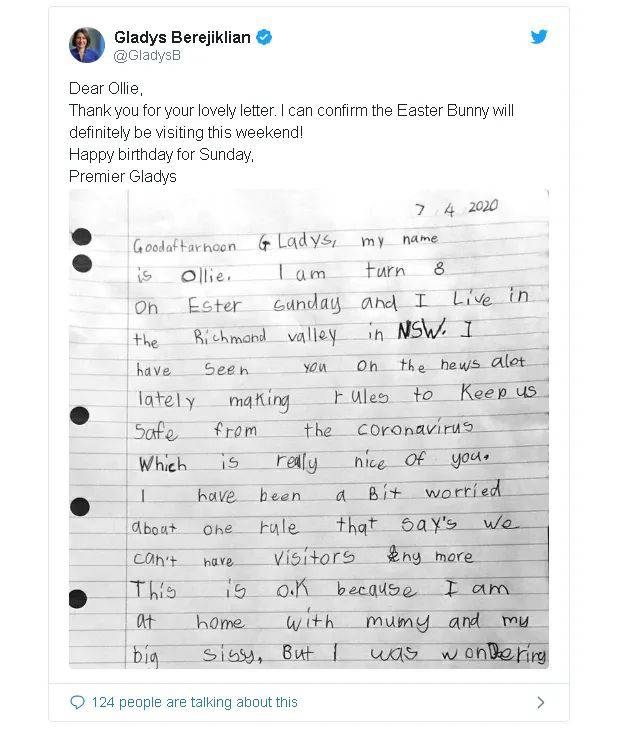 Gladys Berejiklian
@GladysB
Dear Ollie,
Thank you for your lovely letter. I can confirm the Easter Bunny will
definitely be visiting this weekend!
Happy birthday for Sunday,
Premier Gladys
7 4 2020
Goodaftarnoon Gladys, my name
is Ollie. I am turn 8
on Ester sunday and I Live in
the Richmond valley in NSW. I
have seen you on the news alot
lately making rules to Keep us
safe from the coronavirus
Which is really nice of you.
I have been a Bit worried
about one rule that say's we
can't have visitors eny more
This is O.K because I am
at home with mumy and my
big sissy, But I was wondering
124 people are talking about this